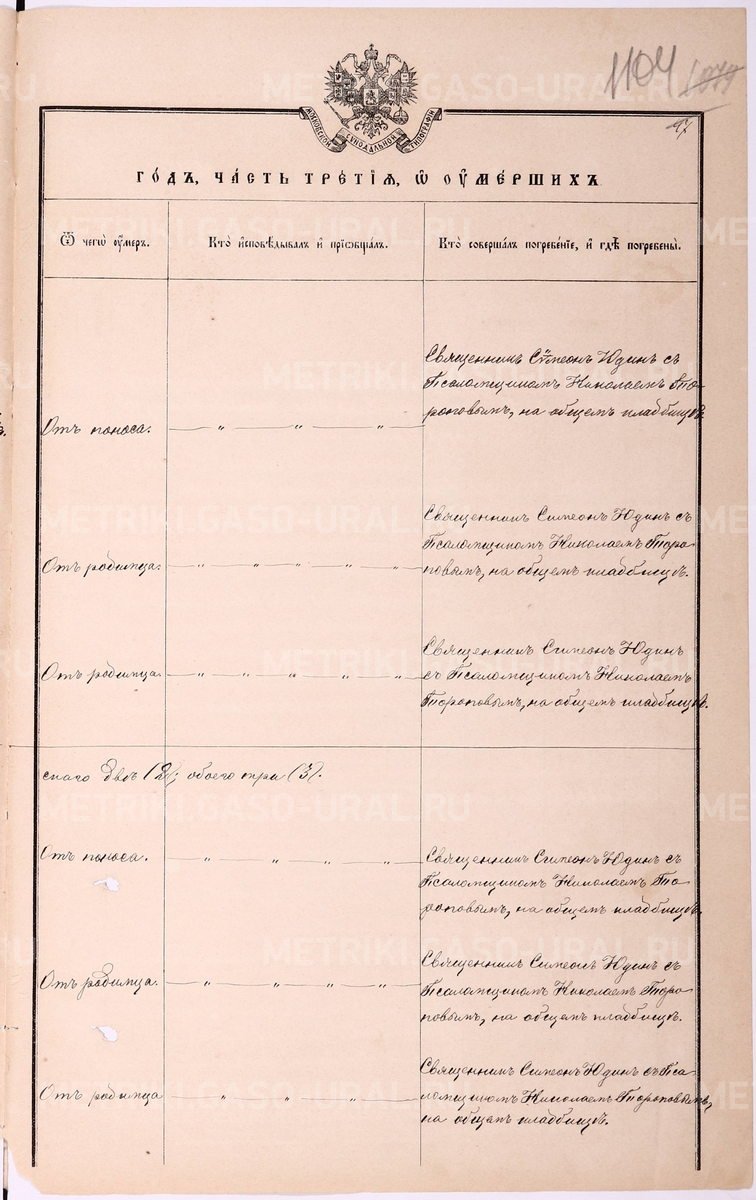 1104 1079
97
МОСКОВСКОЙ СУНОДАЛЬНОЙ ТИПОГРАФІИ
ГО́ДЪ, ЧА́СТЬ ТРЕ́ТІѦ, Ѡ ОУМЕ́РШИХЪ
Ѿ чегѡ̀ оу́меръ.
Кто̀ и҆сповѣ́дывалъ и҆ прїѡбща́лъ.
Кто̀ соверша́лъ погребе́нїе, и҆ гдѣ̀ погребены̀.
Отъ поноса.
— „ — „ — „ —
Священникъ Сѵмеонъ Юдинъ съ
Псаломщикомъ Николаемъ То-
роповымъ, на общемъ кладбищѣ.
Отъ родимца.
— „ — „ — „ — „ — „
Священникъ Симеонъ Юдинъ съ
Псаломщикомъ Николаемъ Торо-
повымъ, на общемъ кладбищѣ.
Отъ родимца.
— „ — „ — „ — „ — „
Священникъ Симеонъ Юдинъ
съ Псаломщикомъ Николаемъ
Тороповымъ, на общемъ кладбищѣ.
скаго двѣ (2); обоего три (3).
Отъ поноса.
— „ — „ — „ — „ —
Священникъ Симеонъ Юдинъ съ
Псаломщикомъ Николаемъ То-
роповымъ, на общемъ кладбищѣ.
Отъ родимца.
— „ — „ — „ — „ —
Священникъ Симеонъ Юдинъ съ
Псаломщикомъ Николаемъ Торо-
повымъ, на общемъ кладбищѣ.
Отъ родимца
— „ — „ — „ —
Священникъ Симеонъ Юдинъ съ Пса-
ломщикомъ Николаемъ Тороповымъ,
на общемъ кладбищѣ.
METRIKI.GASO-URAL.RU